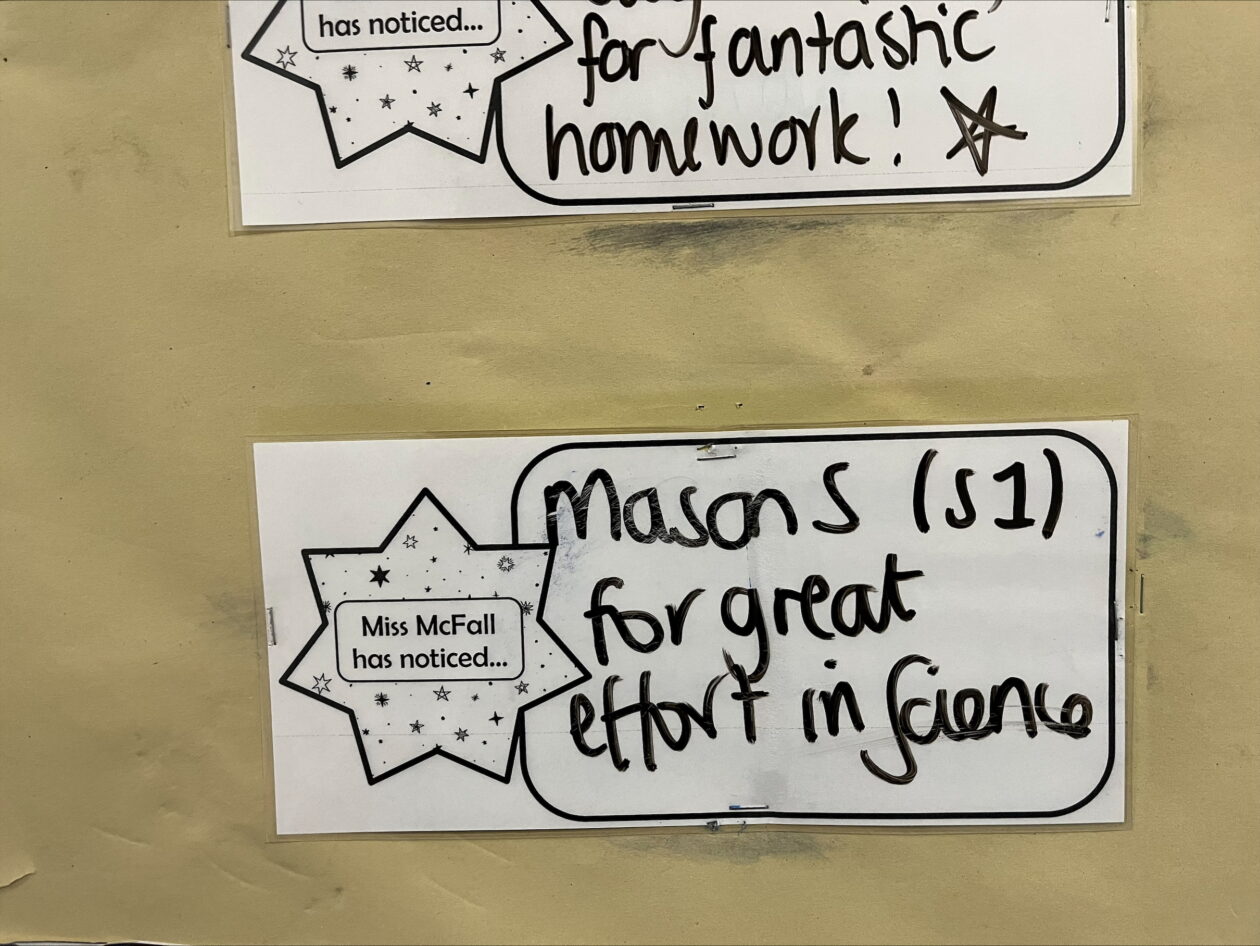 has noticed...
for fantastic
homework!
Mason S (S1)
for great
effort in Science
Miss McFall
has noticed...